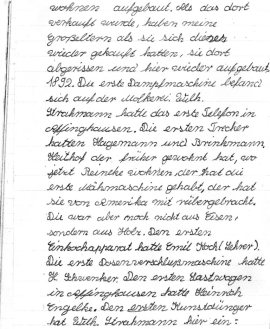 wohnen aufgebaut. Als das dort
verkauft wurde, haben meine
Großeltern als sie sich dieses
wieder gekauft hatten, sie dort
abgerissen und hier wieder aufgebaut
1892. Die erste Dampfmaschine befand
sich auf der Molkerei. Wilh.
Strahmann hatte das erste Telefon in
Affinghausen. Die ersten Trecker
hatten Hagemann und Brinkmann.
Heithof der früher gewohnt hat, wo
jetzt Reineke wohnen, der hat die
erste Mähmaschine gehabt, der hat
sie von Amerika mit rübergebracht.
Die war aber noch nicht aus Eisen,
sondern aus Holz. Den ersten
Einkochapparat hatte Emil Koch (Lehrer).
Die erste Dosenverschlußmaschine hatte
H. Schwenker. Den ersten Lastwagen
in Affinghausen hatte Heinrich
Engelke. Den ersten Kunstdünger
hat Wilh. Strahmann hier ein-